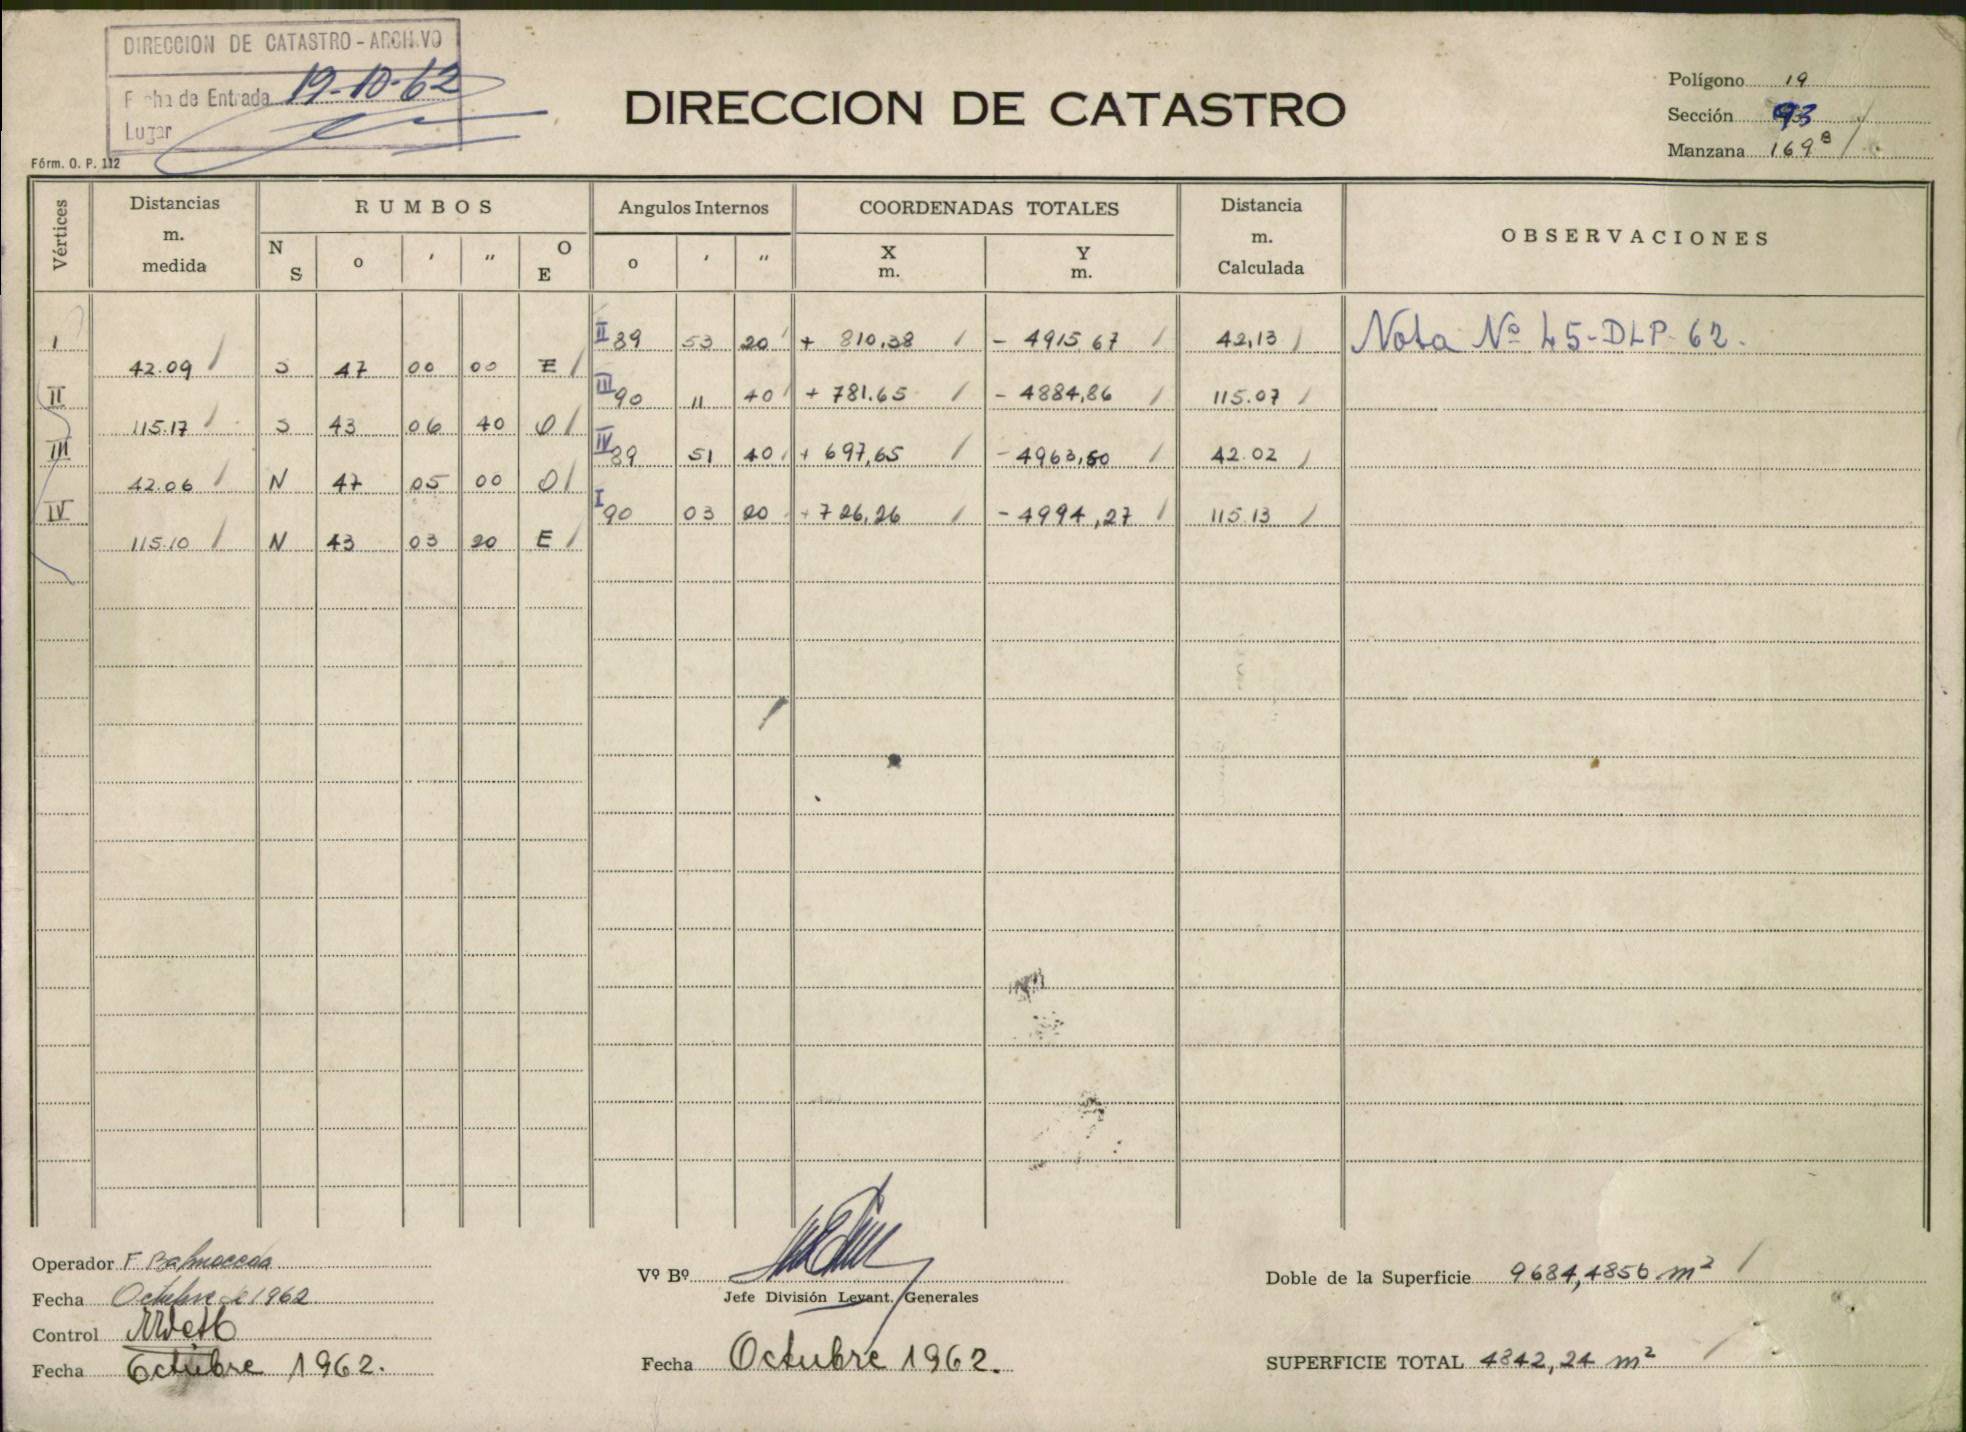 DIRECCION DE CATASTRO - ARCHIVO
Fecha de Entrada 19-10-62
Lugar
Fórm. O. P. 112
DIRECCION DE CATASTRO
Polígono 19
Sección 93
Manzana 169 B
Vértices
Distancias m. medida
RUMBOS
N S o ′ ″ O E
Angulos Internos
o ′ ″
COORDENADAS TOTALES
X m. Y m.
Distancia m. Calculada
OBSERVACIONES
I II 89 53 20 + 810,38 - 4915,67 42,13 Nota Nº 45-DLP-62.
42.09 S 47 00 00 E
II III 90 11 40 + 781.65 - 4884,86 115.07
115.17 S 43 06 40 O
III IV 89 51 40 + 697,65 - 4963,50 42.02
42.06 N 47 05 00 O
IV I 90 03 20 + 726,26 - 4994,27 115.13
115.10 N 43 03 20 E
Operador F Balmaceda
Fecha Octubre de 1962
Control
Fecha Octubre 1962.
Vº Bº
Jefe División Levant. Generales
Fecha Octubre 1962.
Doble de la Superficie 9684,4856 m²
SUPERFICIE TOTAL 4842,24 m²